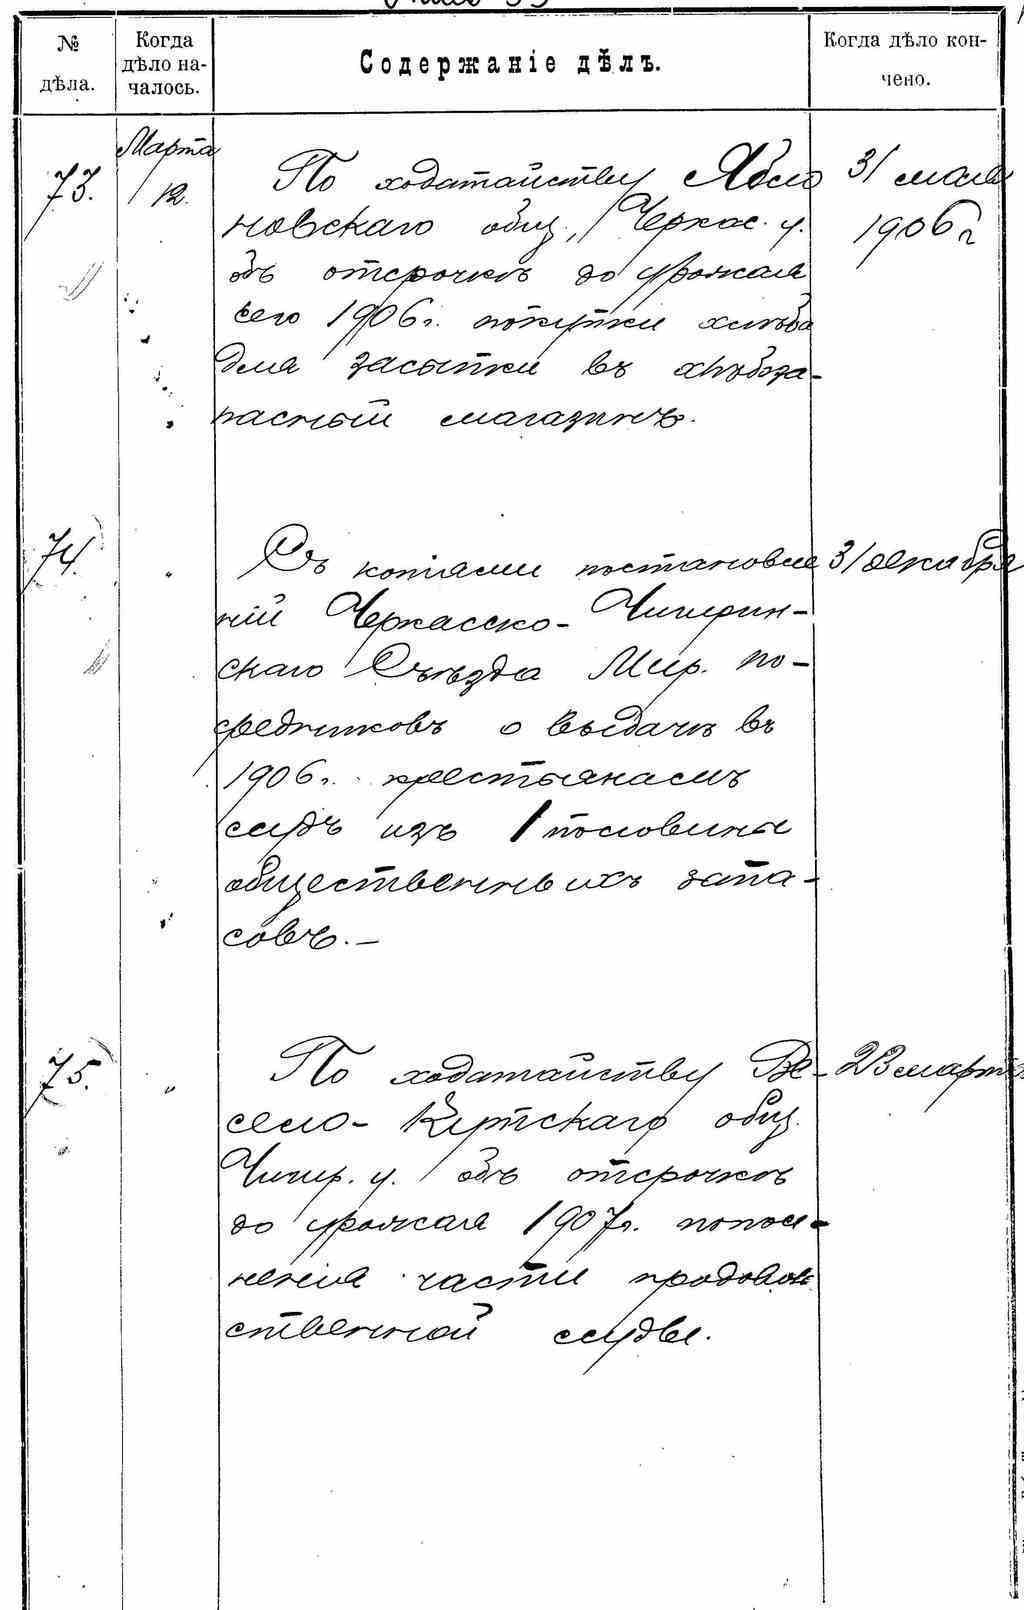 № дѣла.
Когда дѣло на-
чалось.
Содержаніе дѣлъ.
Когда дѣло кон-
чено.
73.
Марта
12.
По ходатайству Ябло
новскаго общ., Черкас. у.
объ отсрочкѣ до урожая
сего 1906 г. покупки хлѣба
для засыпки въ хлѣбоза-
пасный магазинъ.
31 мая
1906 г
74.
"
Съ копіями постановле
ній Черкасско-Чигирин-
скаго Съѣзда Мир. по-
средниковъ о выдачѣ въ
1906 г. крестьянамъ
ссудъ изъ 1 половины
общественныхъ запа-
совъ.-
31 декабря
75.
"
По ходатайству Ве-
село-Кутскаго общ.
Чигир. у. объ отсрочкѣ
до урожая 1907 г. попол-
ненія части продоволь
ственной ссуды.
23 марта